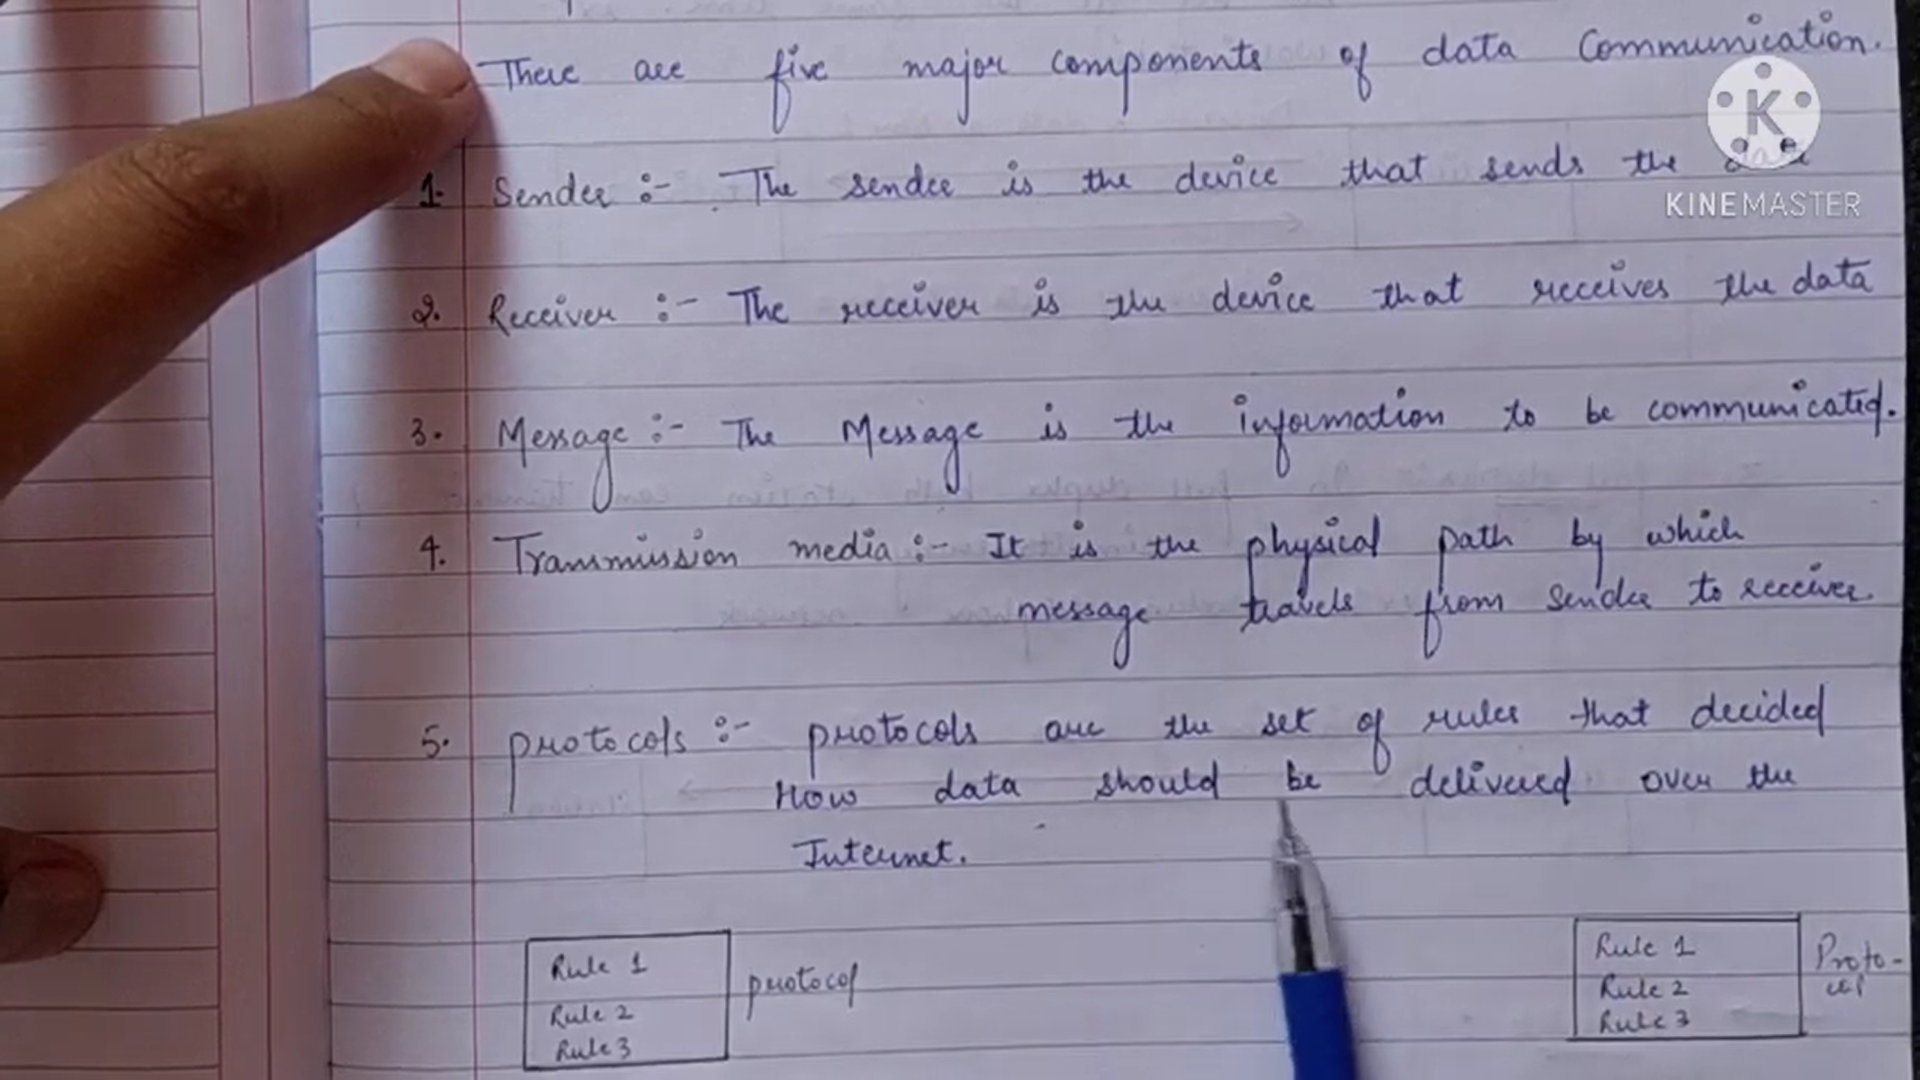 There are five major components of data Communication.
1. Sender :- The sender is the device that sends the data
KINEMASTER
2. Receiver :- The receiver is the device that receives the data
3. Message :- The Message is the information to be communicated.
4. Transmission media :- It is the physical path by which
message travels from sender to receiver.
5. protocols :- protocols are the set of rules that decided
How data should be delivered over the
Internet.
Rule 1
Rule 2
Rule 3
protocol
Rule 1
Rule 2
Rule 3
Proto-
col